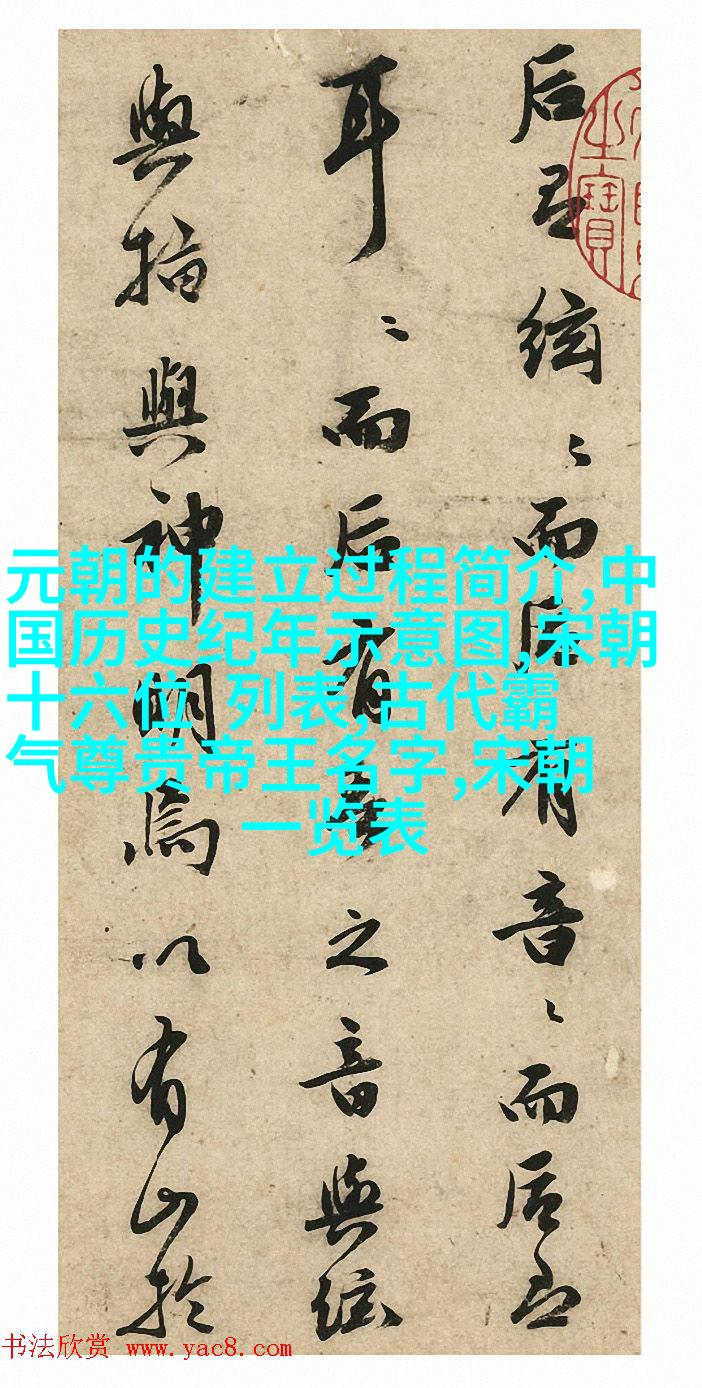 后絃〻而后有音〻而后
耳〻而后有之音與絃
與指與神明焉以有山於
元朝的建立过程简介,中
国历史纪年示意图,宋朝
十六位 列表,古代霸
气尊贵帝王名字,宋朝
一览表
之寶
书法欣赏 www.yac8.com